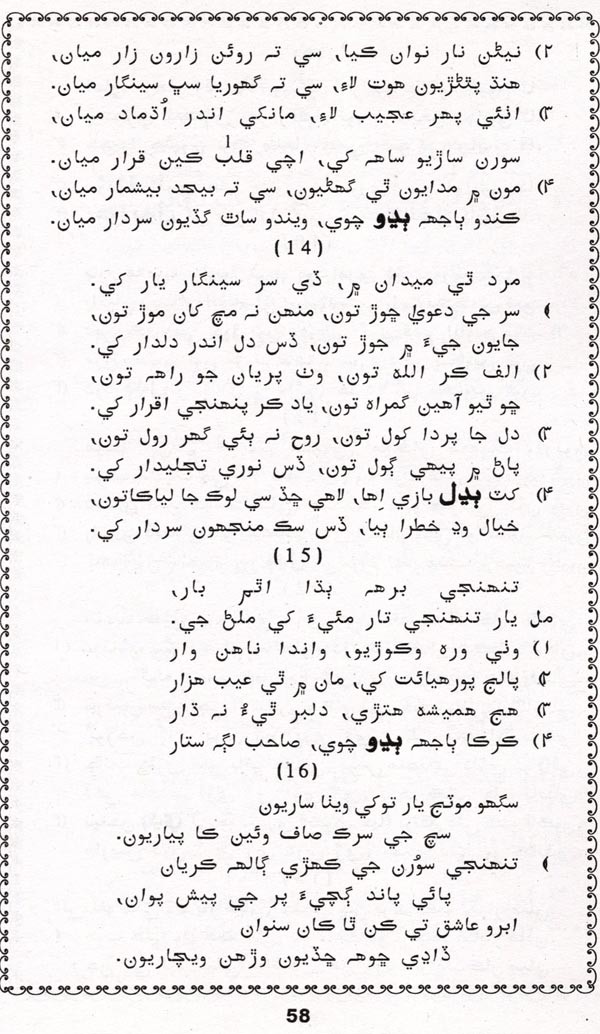 ۲) نيڻن نار نوان ڪيا، سي تہ روئن زارون زار ميان،
هنڌ پٿڻڙيون هوت لاءِ، سي تہ گهوريا سڀ سينگار ميان.
۳) اٺئي پهر عجيب لاءِ، مانکي اندر اُڌماد ميان،
سورن ساڙيو ساهہ کي، اچي قلب ڪين قرار ميان.
۴) مون ۾ مدايون ٿي گهڻيون، سي تہ بيحد بيشمار ميان،
ڪندو ٻاجهہ ٻڍو چوي، ويندو ساٿ گڏيون سردار ميان.
(14)
مرد ٿي ميدان ۾، ڏي سر سينگار يار کي.
۱ سر جي دعويٰ ڇوڙ تون، منهن نہ مچ کان موڙ تون،
جايون جيءَ ۾ جوڙ تون، ڏس دل اندر دلدار کي.
۲) الف ڪر الله تون، وٺ پريان جو راهہ تون،
ڇو ٿيو آهين گمراه تون، ياد ڪر پنهنجي اقرار کي.
۳) دل جا پردا کول تون، روح نہ ٻئي گهر رول تون،
پاڻ ۾ پيهي ڳول تون، ڏس نوري تجليدار کي.
۴) کٽ ٻڍل بازي اِها، لاهي ڇڏ سي لوڪ جا لياڪاتون،
خيال وڍ خطرا ٻيا، ڏس سڪ منجهون سردار کي.
(15)
تنهنجي برهہ ٻڌا اٿم بار،
مل يار تنهنجي تار مئيءَ کي ملڻ جي.
۱) وٺي وره وڪوڙيو، واندا ناهن وار
۲) پالج پورهيائت کي، مان ۾ ٿي عيب هزار
۳) هڄ هميشه هتڙي، دلبر ٿيءُ نہ ڌار
۴) ڪرڪا ٻاجهہ ٻڍو چوي، صاحب لڳہ ستار
(16)
سگهو موٽج يار توکي ويٺا ساريون
سچ جي سرڪ صاف وئين ڪا پياريون.
۱ تنهنجي سوُرن جي ڪهڙي ڳالهہ ڪريان
پائي پاند ڳچيءَ پر جي پيش پوان،
ابرو عاشق تي ڪن ٿا ڪان سنوان
ڏاڍي ڇوهہ ڇڏيون وڙهن ويچاريون.
58